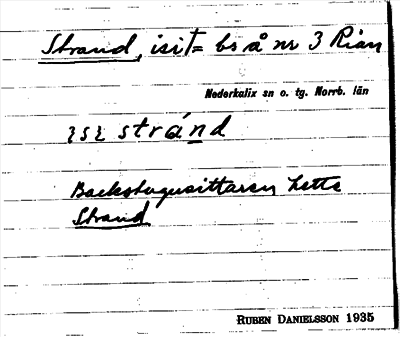 Strand, isit= bs å nr 3 Rian
Nederkalix sn o. tg. Norrb. län
stránd
Backstugusittaren hette
Strand
RUBEN DANIELSSON 1935